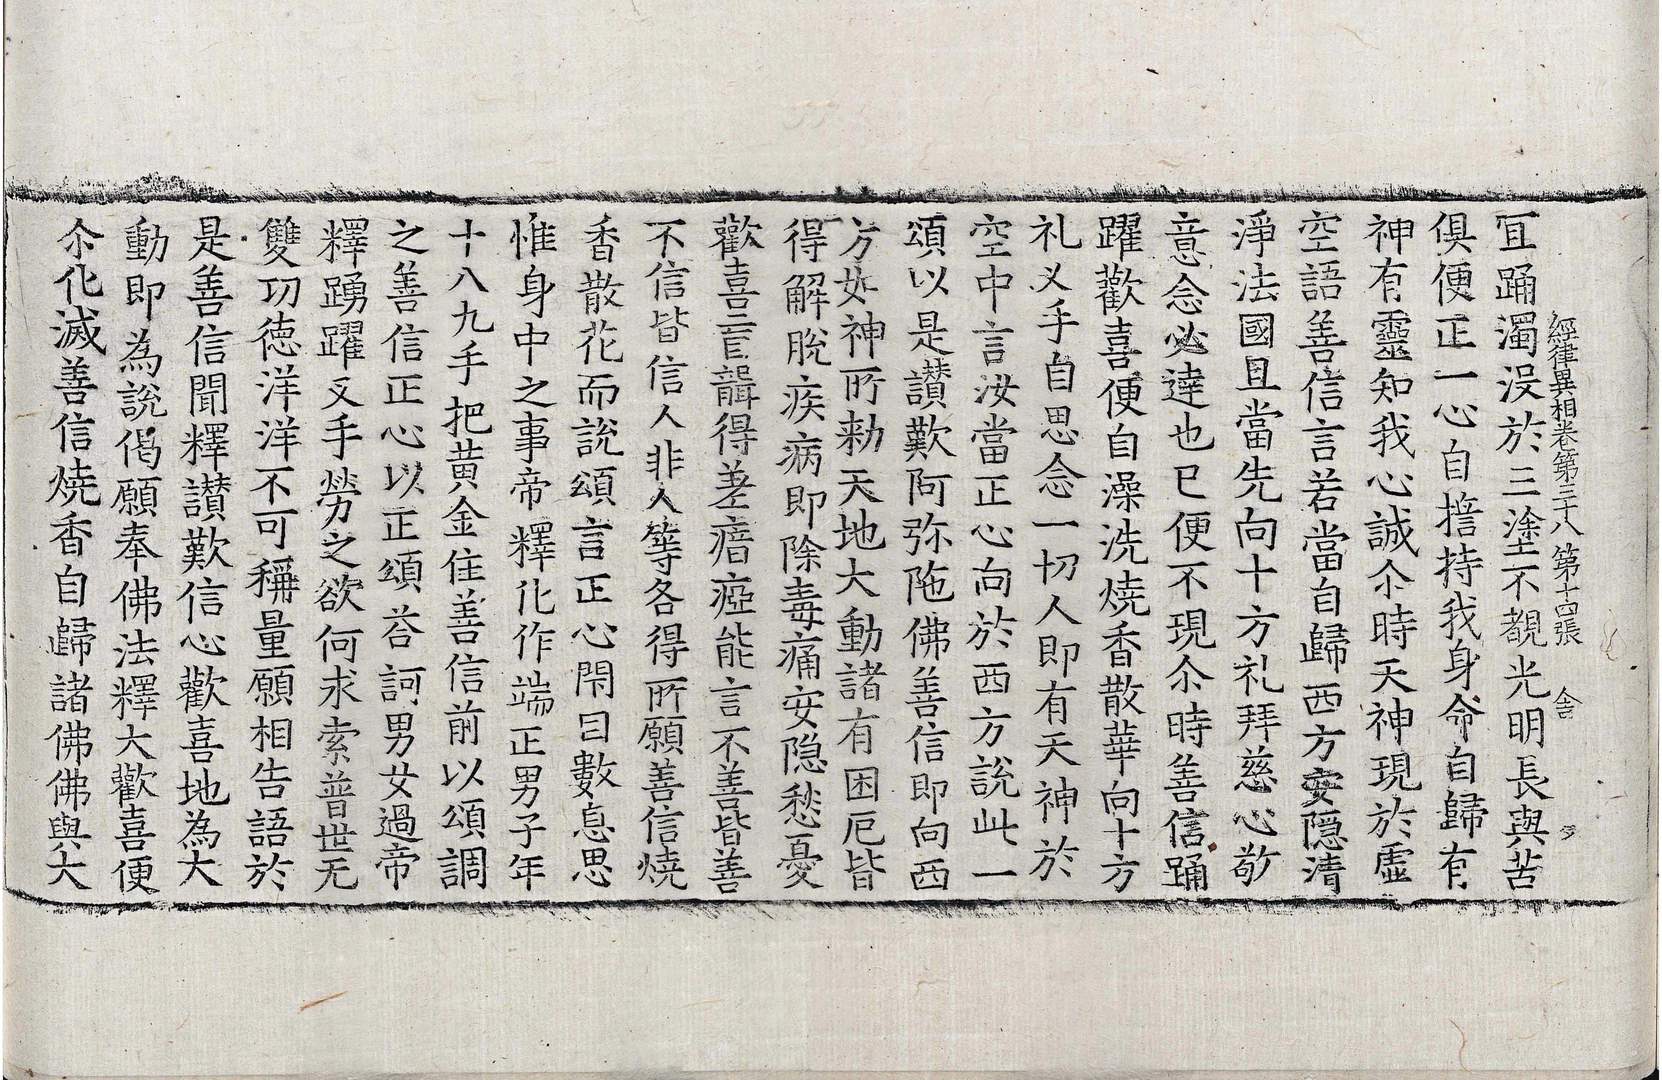 經律異相卷第三十八 第十四張 舍
冝踊濁没於三塗不覩光明長與苦
俱便正一心自揞持我身命自歸有
神有靈知我心誠尒時天神現於虛
空語善信言若當自歸西方安隱清
淨法國且當先向十方礼拜慈心敬
意念必達也已便不現尒時善信踊
躍歡喜便自澡洗燒香散華向十方
礼叉手自思念一切人即有天神於
空中言汝當正心向於西方說此一
頌以是讃歎阿弥陁佛善信即向西
方如神所勑天地大動諸有困厄皆
得解脫疾病即除毒痛安隱愁憂
歡喜盲聾得差瘖瘂能言不善皆善
不信皆信人非人等各得所願善信燒
香散花而說頌言正心閇目數息思
惟身中之事帝釋化作端正男子年
十八九手把黄金住善信前以頌調
之善信正心以正頌荅訶男女過帝
釋踴躍叉手勞之欲何求索普世无
雙功德洋洋不可稱量願相告語於
是善信聞釋讃歎信心歡喜地為大
動即為說偈願奉佛法釋大歡喜便
尒化滅善信燒香自歸諸佛佛與大